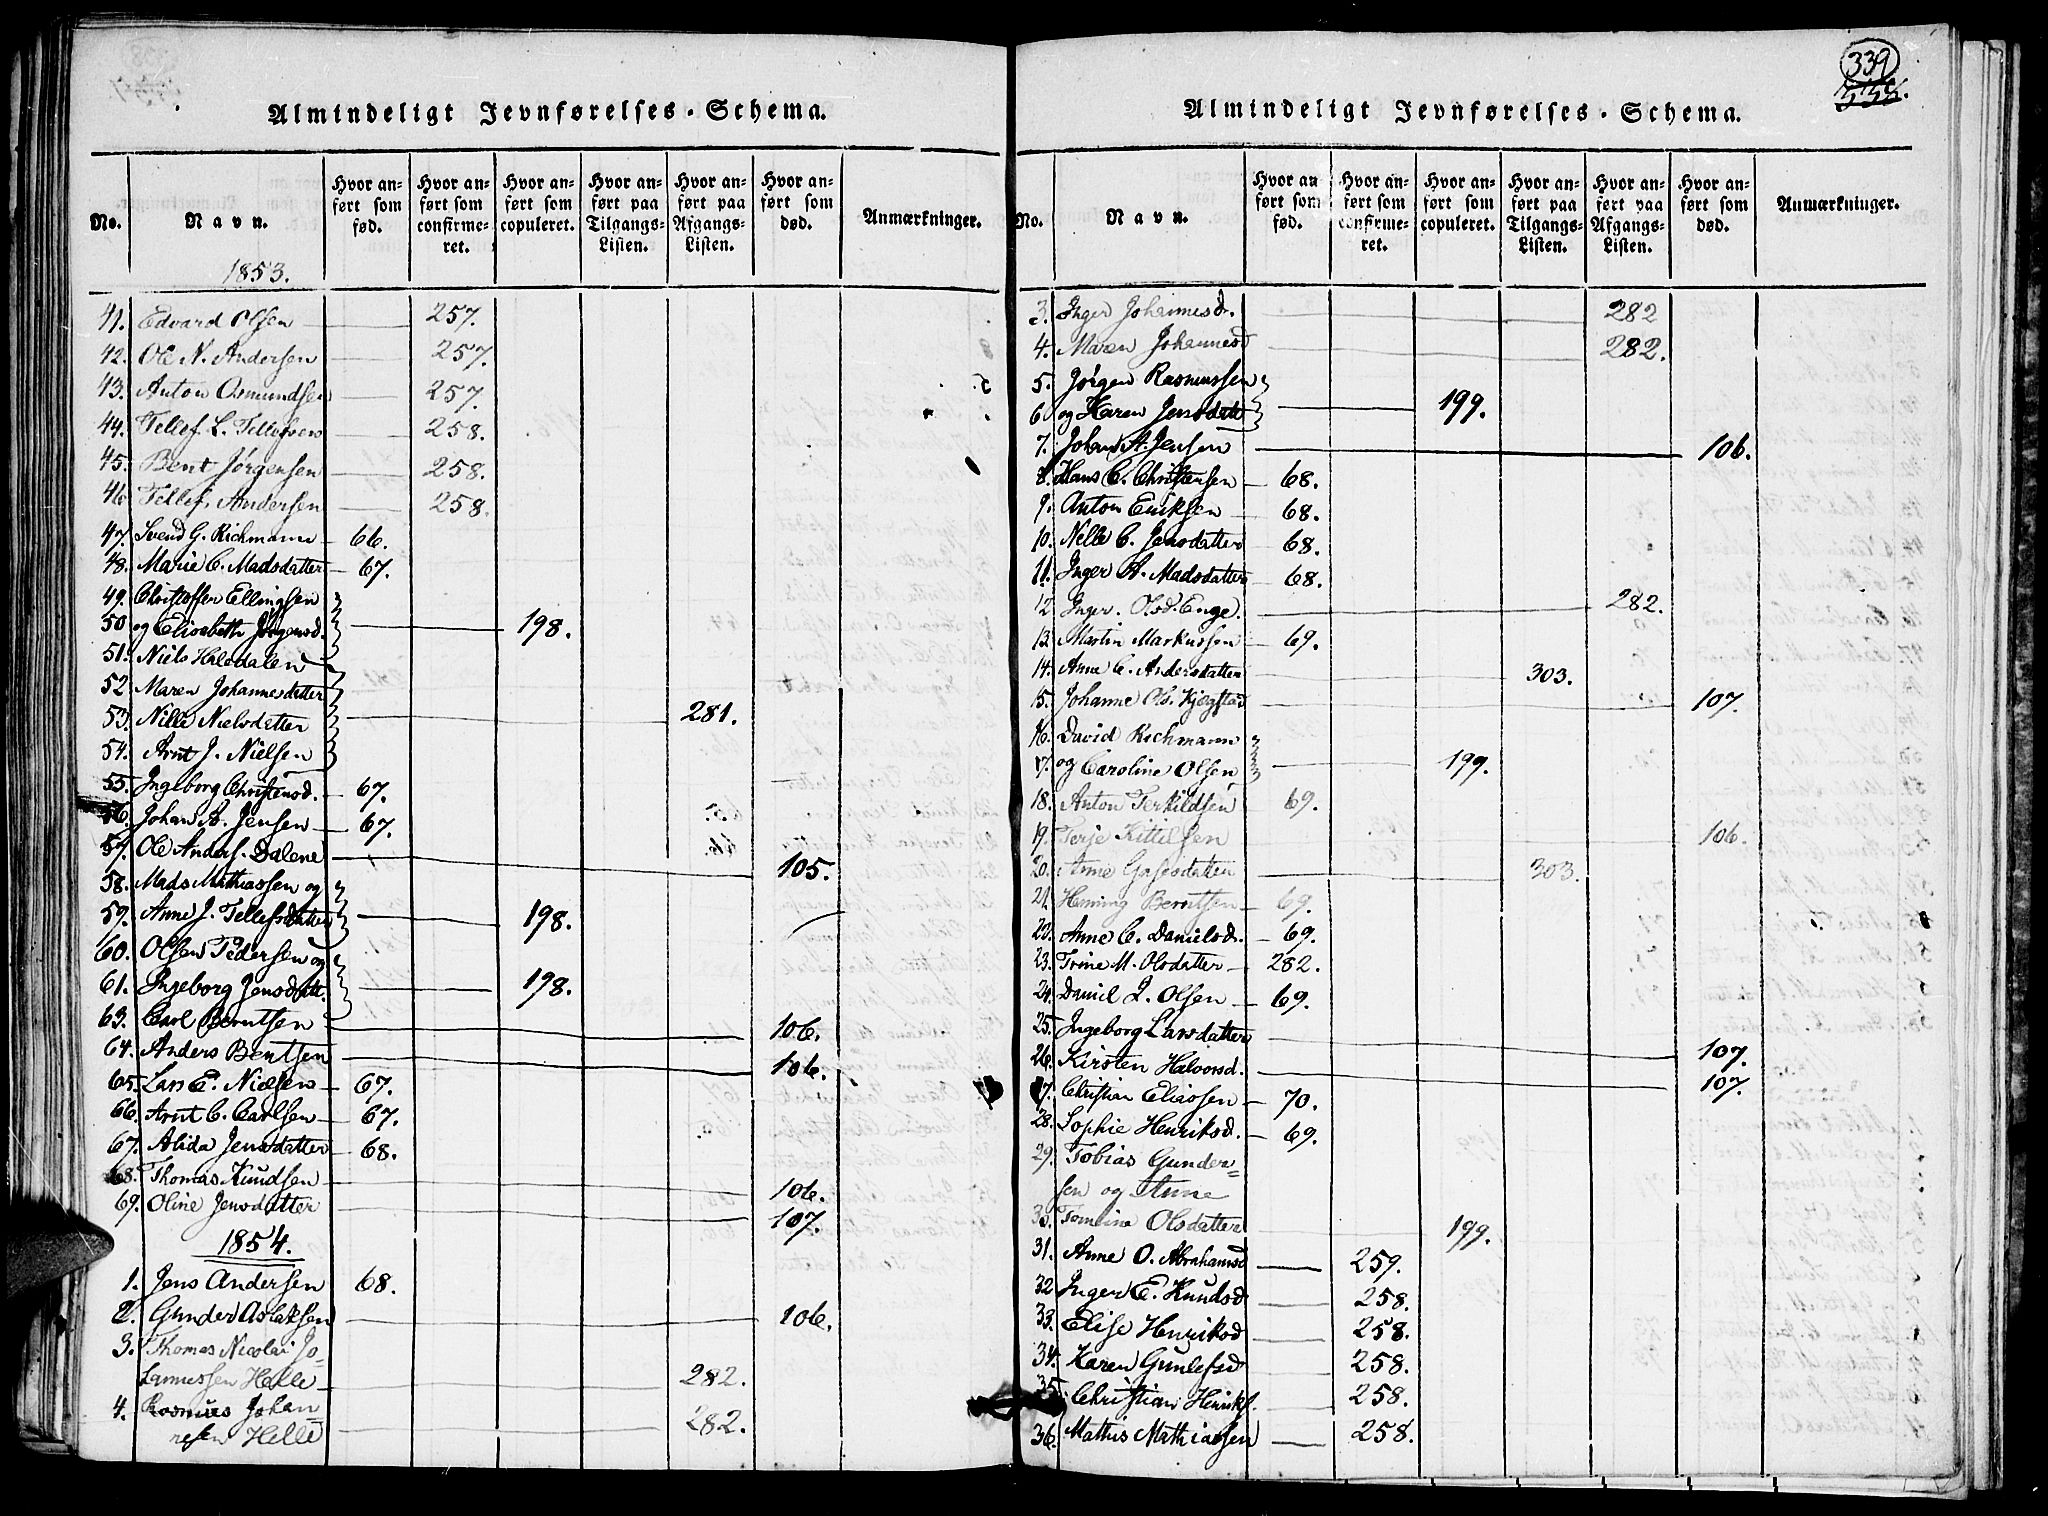 Almindeligt Jevnførelses-Schema.
No.
Navn.
Hvor anført som fød.
Hvor anført som confirmeret.
Hvor anført som copuleret.
Hvor anført paa Tilgangs-Listen.
Hvor anført paa Afgangs-Listen.
Hvor anført som død.
Anmærkninger.
1853.
41. Edvard Olsen 257.
42. Ole N. Andersen 257.
43. Anton Osmundsen 257.
44. Tellef L. Tellefsen 258.
45. Bent Jørgensen 258.
46. Tellef Andersen 258.
47. Svend G. Richmann 66.
48. Marie C. Madsdatter 67.
49. Christoffer Ellingsen
50 og Elisabeth Jørgensd. 198.
51. Niels Halvdalen
52 Maren Johannesdatter
53. Nille Nielsdatter 281.
54. Arnt J. Nielsen
55. Ingeborg Christensd. 67.
56. Johan A. Jensen 67.
57. Ole Anders. Dalene 105.
58. Mads Mathiassen og
59. Anne J. Tellefsdatter 198.
60. Olsen Pedersen og
61. Ingeborg Jensdatt. 198.
63. Carl Berntsen 106.
64. Anders Bentsen 106.
65. Lars E. Nielsen 67.
66. Arnt C. Carlsen 67.
67. Alida Jensdatter 68.
68. Thomas Knudsen 106.
69. Oline Jensdatter 107.
1854.
1. Jens Andersen 68.
2. Gunder Aslaksen 106.
3. Thomas Nicolai Jo-
hannessen Helle 282.
4. Rasmus Johan
nesen Helle 282.
339
Almindeligt Jevnførelses-Schema.
No.
Navn.
Hvor anført som fød.
Hvor anført som confirmeret.
Hvor anført som copuleret.
Hvor anført paa Tilgangs-Listen.
Hvor anført paa Afgangs-Listen.
Hvor anført som død.
Anmærkninger.
3. Inger Johannesd. 282
4. Maren Johannesd 282.
5. Jørgen Rasmussen
6. og Karen Jensdatt 199.
7. Johan A. Jensen 106.
8. Hans C. Christensen 68.
9. Anton Eriksen 68.
10. Nelle C. Jensdatter 68.
11. Inger A. Madsdatter 68.
12 Inger Olsd. Enge. 282.
13. Martin Markussen 69.
14. Anne C. Andersdatter 303.
15. Johanne Ols. Kjegstad 107.
16. David Richmann
17. og Caroline Olsen 199.
18. Anton Terkildsen 69.
19. Terje Kittilsen 106.
20. Anne 303.
21. Heming Berntsen 69.
22. Anne C. Danielsd. 69.
23. Trine M. Olsdatter 282.
24. Daniel J. Olsen 69.
25. Ingeborg Larsdatter 107.
26. Kirsten Halvorsd. 107.
27. Christian Eliassen 70.
28. Sophie Henriksd. 69.
29. Tobias Gunder-
sen og Anne
30. Tomine Olsdatter 199.
31. Anne O. Abrahamsd 259.
32 Inger E. Knudsd 258.
33. Elise Henriksd 258.
34. Karen Gunlefsd 258.
35. Christian Henriks. 258.
36. Mathis Mathiassen 258.